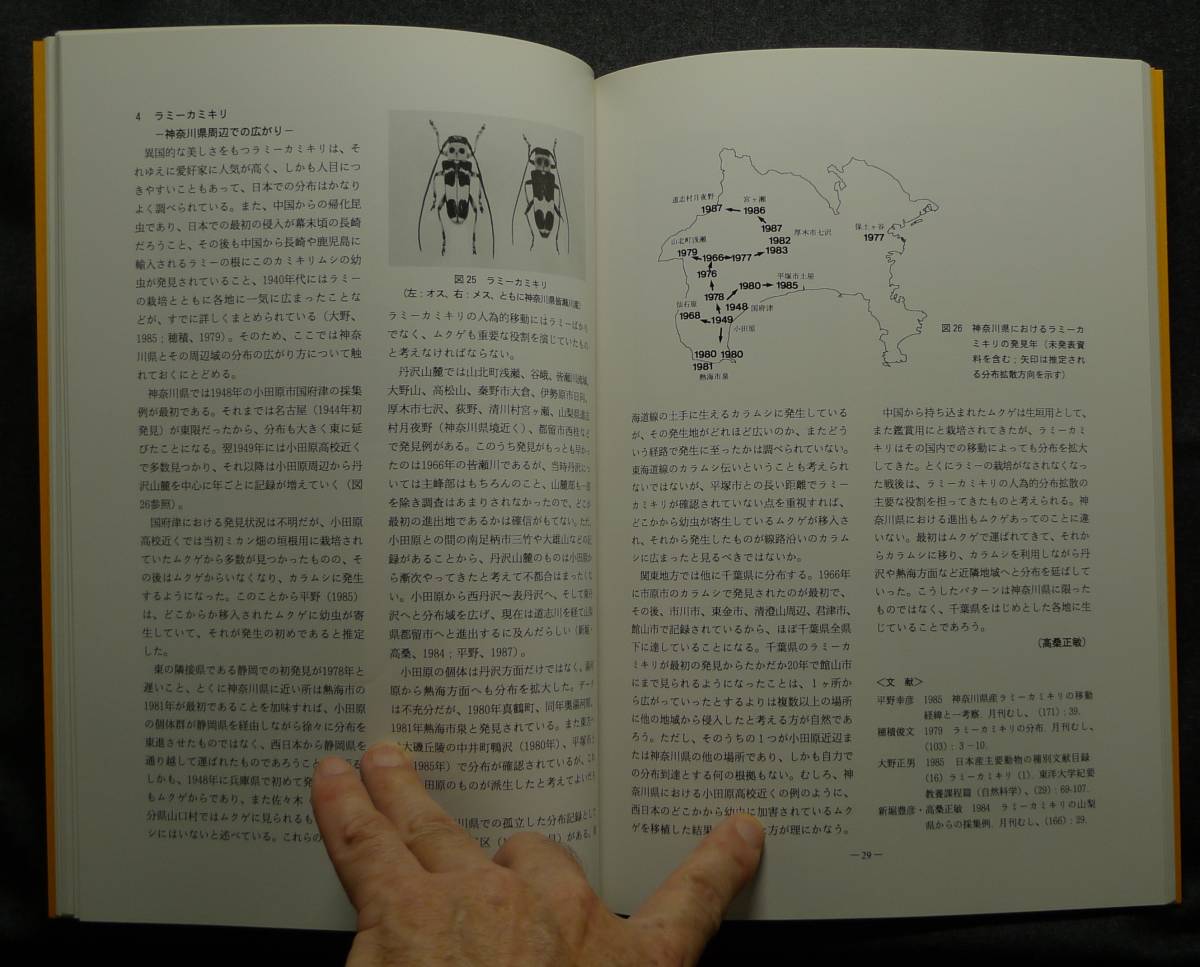 4 ラミーカミキリ
－神奈川県周辺での広がり－
異国的な美しさをもつラミーカミキリは、そ
れゆえに愛好家に人気が高く、しかも人目につ
きやすいこともあって、日本での分布はかなり
よく調べられている。また、中国からの帰化昆
虫であり、日本での最初の侵入が幕末頃の長崎
だろうこと、その後も中国から長崎や鹿児島に
輸入されるラミーの根にこのカミキリムシの幼
虫が発見されていること、1940年代にはラミー
の栽培とともに各地に一気に広まったことな
どが、すでに詳しくまとめられている（大野、
1985；穂積、1979）。そのため、ここでは神奈
川県とその周辺域の分布の広がり方について触
れておくにとどめる。
神奈川県では1948年の小田原市国府津の採集
例が最初である。それまでは名古屋（1944年初
発見）が東限だったから、分布も大きく東に延
びたことになる。翌1949年には小田原高校近く
で多数見つかり、それ以降は小田原周辺から丹
沢山麓を中心に年ごとに記録が増えていく（図
26参照）。
国府津における発見状況は不明だが、小田原
高校近くでは当初ミカン畑の垣根用に栽培され
ていたムクゲから多数が見つかったものの、そ
の後はムクゲからいなくなり、カラムシに発生
するようになった。このことから平野（1985）
は、どこからか移入されたムクゲに幼虫が寄
生していて、それが発生の初めであると推定
した。
東の隣接県である静岡での初発見が1978年と
遅いこと、とくに神奈川県に近い所は熱海市の
1981年が最初であることを加味すれば、小田原
の個体群が静岡県を経由しながら徐々に分布を
東進させたものではなく、西日本から静岡県を
通り越して運ばれたものであろうこと
しかも、1948年に兵庫県で初めて発
もムクゲからであり、また佐々木
分県山口村ではムクゲに見られるも
シにはいないと述べている。これらの
図25 ラミーカミキリ
（左：オス、右：メス、ともに神奈川県皆瀬川産）
ラミーカミキリの人為的移動にはラミーばかり
でなく、ムクゲも重要な役割を演じていたもの
と考えなければならない。
丹沢山麓では山北町浅瀬、谷峨、皆瀬川流域、
大野山、高松山、秦野市大倉、伊勢原市日向、
厚木市七沢、荻野、清川村宮ヶ瀬、山梨県道志
村月夜野（神奈川県境近く）、都留市西桂など
で発見例がある。このうち発見がもっとも早かっ
たのは1966年の皆瀬川であるが、当時丹沢につ
いては主峰部はもちろんのこと、山麓部も一部
を除き調査はあまりされなかったので、どこが
最初の進出地であるかは確信がもてない。ただ、
小田原との間の南足柄市三竹や大雄山などの記
録があることから、丹沢山麓のものは小田原か
ら漸次やってきたと考えて不都合はまったくな
い。小田原から西丹沢へ表丹沢へ、そして東丹
沢へと分布域を広げ、現在は道志川を経て山梨
県都留市へと進出するに及んだらしい（新堀・
高桑、1984；平野、1987）。
小田原の個体は丹沢方面だけではなく、湯河
原から熱海方面へも分布を拡大した。データ
は不充分だが、1980年真鶴町、同年奥湯河原、
1981年熱海市泉と発見されている。また東方へ
大磯丘陵の中井町鴨沢（1980年）、平塚市土
1985年）で分布が確認されているが、これ
田原のものが派生したと考えてよいだろ
川県での孤立した分布記録として
道志村月夜野
1987
宮ヶ瀬
1986
1987
1982
1983
厚木市七沢
保土ヶ谷
1977
山北町浅瀬
1979
1966
1977
1976
平塚市土屋
1980
1985
1978
仙石原
1968
1948
国府津
1949
小田原
1980
1980
1981
熱海市泉
図26 神奈川県におけるラミーカ
ミキリの発見年（未発表資
料を含む；矢印は推定され
る分布拡散方向を示す）
海道線の土手に生えるカラムシに発生している
が、その発生地がどれほど広いのか、またどう
いう経路で発生に至ったかは調べられていない。
東海道線のカラムシ伝いということも考えられ
ないではないが、平塚市との長い距離でラミー
カミキリが確認されていない点を重視すれば、
どこからか幼虫が寄生しているムクゲが移入さ
れ、それから発生したものが線路沿いのカラム
シに広まったと見るべきではないか。
関東地方では他に千葉県に分布する。1966年
に市原市のカラムシで発見されたのが最初で、
その後、市川市、東金市、清澄山周辺、君津市、
館山市で記録されているから、ほぼ千葉県全県
下に達していることになる。千葉県のラミーカ
ミキリが最初の発見からたかだか20年で館山市
にまで見られるようになったことは、1ヶ所か
ら広がっていったとするよりは複数以上の場所
に他の地域から侵入したと考える方が自然であ
ろう。ただし、そのうちの1つが小田原近辺ま
たは神奈川県の他の場所であり、しかも自力で
の分布到達とする何の根拠もない。むしろ、神
奈川県における小田原高校近くの例のように、
西日本のどこかから幼虫に加害されているムク
ゲを移植した結果 た方が理にかなう。
中国から持ち込まれたムクゲは生垣用として、
また鑑賞用にと栽培されてきたが、ラミーカミ
キリはその国内での移動によっても分布を拡大
してきた。とくにラミーの栽培がなされなくなっ
た戦後は、ラミーカミキリの人為的分布拡散の
主要な役割を担ってきたものと考えられる。神
奈川県における進出もムクゲあってのことに違
いない。最初はムクゲで運ばれてきて、それか
らカラムシに移り、カラムシを利用しながら丹
沢や熱海方面など近隣地域へと分布を延ばして
いった。こうしたパターンは神奈川県に限った
ものではなく、千葉県をはじめとした各地に生
じていることであろう。
（高桑正敏）
＜文 献＞
平野幸彦 1985 神奈川県産ラミーカミキリの移動
経緯と一考察. 月刊むし、(171)：39.
穂積俊文 1979 ラミーカミキリの分布. 月刊むし、
(103)：3－10.
大野正男 1985 日本産主要動物の種別文献目録
(16) ラミーカミキリ (1). 東洋大学紀要
教養課程篇（自然科学）、(29)：69-107.
新堀豊彦・高桑正敏 1984 ラミーカミキリの山梨
県からの採集例. 月刊むし、(166)：29.
—29—